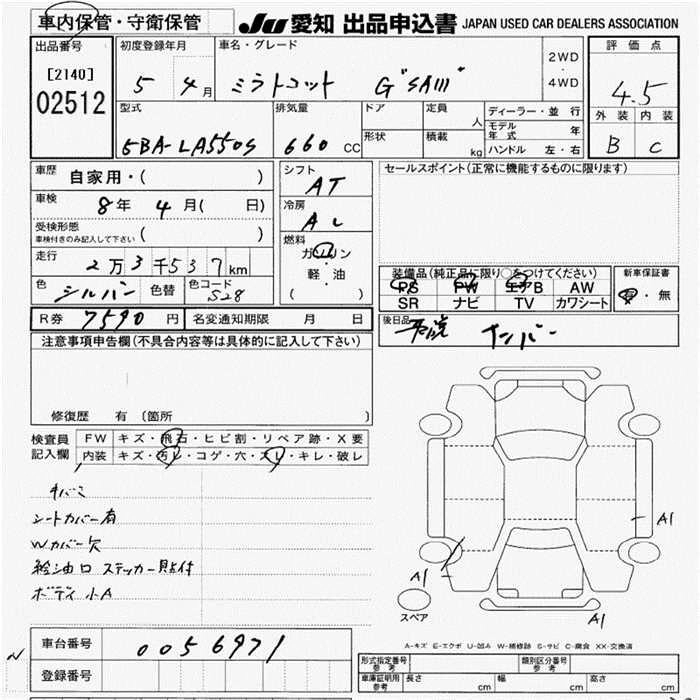 車内保管・守衛保管
JU 愛知 出品申込書 JAPAN USED CAR DEALERS ASSOCIATION
出品番号 初度登録年月 車名・グレード 評価点
[2140] 02512
5 4月 ミラトコット G"SAIII" 2WD・4WD 4.5
型式 排気量 ドア 定員 人 ディーラー・並行 外装 内装
5BA-LA550S 660CC 形状 積載 kg モデル年式 年 B C
ハンドル 左・右
車歴 自家用・( ) シフト AT セールスポイント(正常に機能するものに限ります)
車検 8年 4月( 日) 冷房 AC
受検形態 車検付きのみ記入して下さい ( ) 燃料
走行 2万3千537km ガソリン・軽・油 ( )
装備品(純正品に限り○をつけてください) 新車保証書
PS PW エアB AW 有・無
SR ナビ TV カワシート
色 シルバー 色替 色コード S28
R券 7590円 名変通知期限 月 日 後日品 ナンバー
注意事項申告欄(不具合内容等は具体的に記入して下さい)
修復歴 有 (箇所 )
検査員記入欄 FW キズ・飛石・ヒビ割・リペア跡・X要
内装 キズ・汚レ・コゲ・穴・スレ・キレ・破レ
シートカバー有
Wカバー欠
給油口 ステッカー貼付
ボディ 小A
A1
A1
A1
スペア
A-キズ E-エクボ U-凹み W-補修跡 S-サビ C-腐食 XX-交換済
車台番号 0056971
登録番号
形式指定番号 参考 類別区分番号 参考
車庫証明用 参考 長さ cm 幅 cm 高さ cm